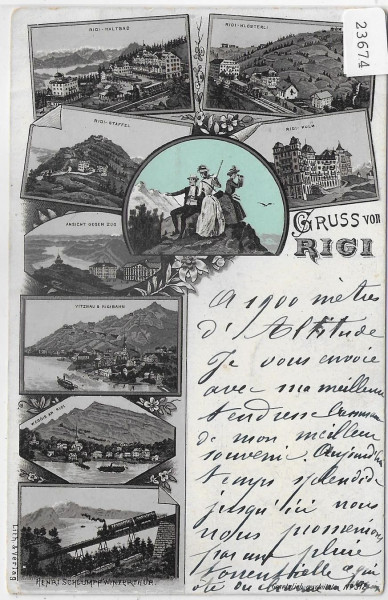 23674
RIGI-KALTBAD
RIGI-KLÖSTERLI
RIGI-STAFFEL
RIGI-KULM
ANSICHT GEGEN ZUG
GRUSS VON
RIGI
VITZNAU & RIGIBAHN
WEGGIS AM RIGI
A 1900 mètres
d'Altitude
Je vous envoie
avec ma meilleure
tendresse
de mon meilleur
souvenir. Aujourd'hui
temps splendide
jusqu'ici nous
nous promenions
par une pluie
torrentielle
Lith. & Verlag
HENRI SCHLUMPF WINTERTHUR.